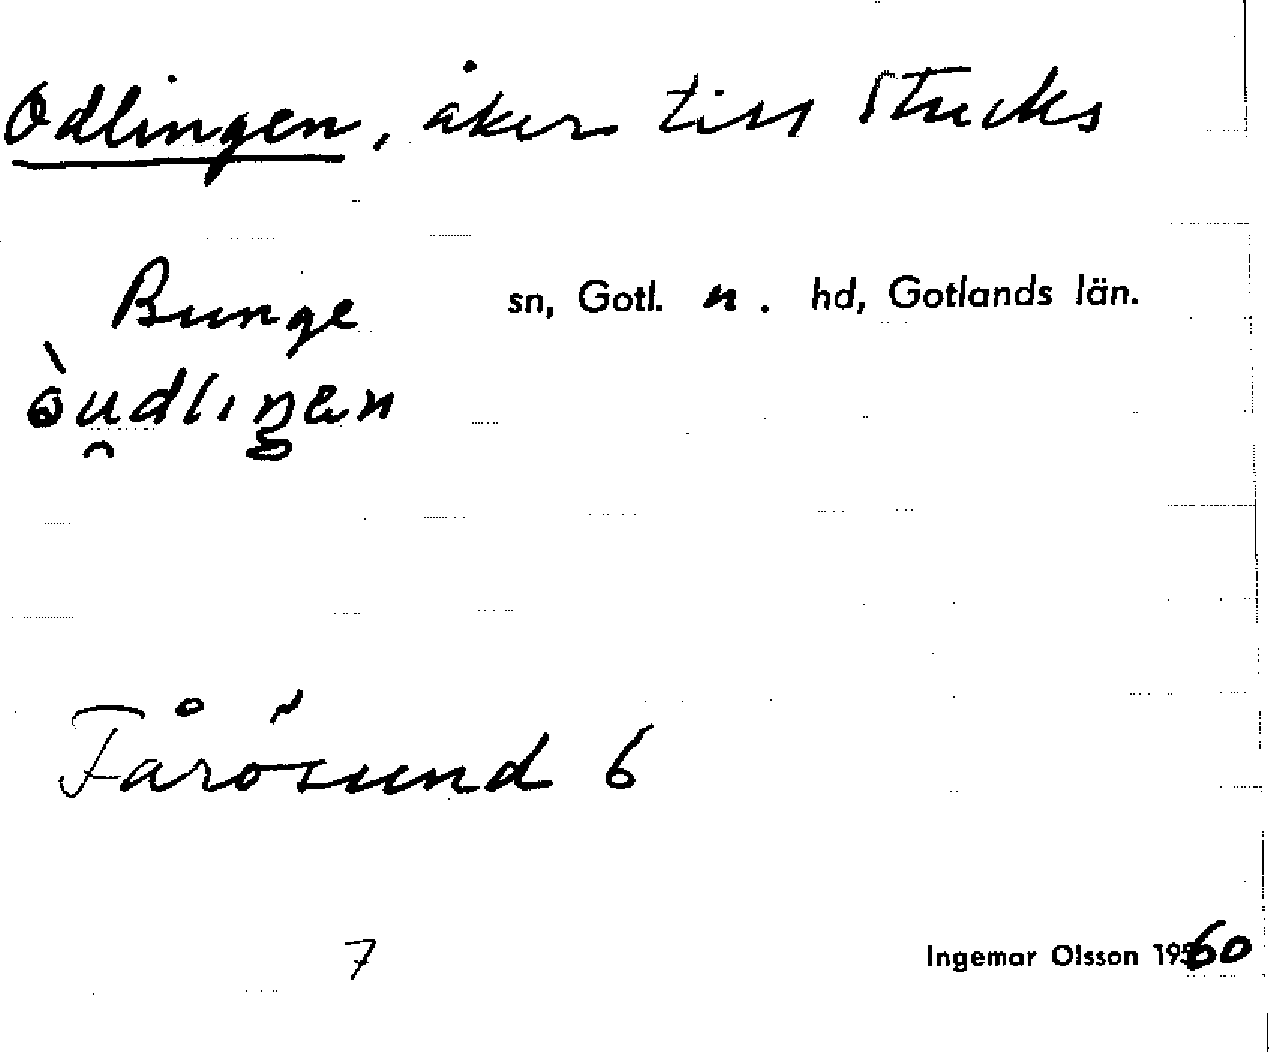 Odlingen, åker till Stucks
Bunge sn, Gotl. n. hd, Gotlands län.
òu̯dlıŋen
Fårösund 6
7
Ingemar Olsson 1960